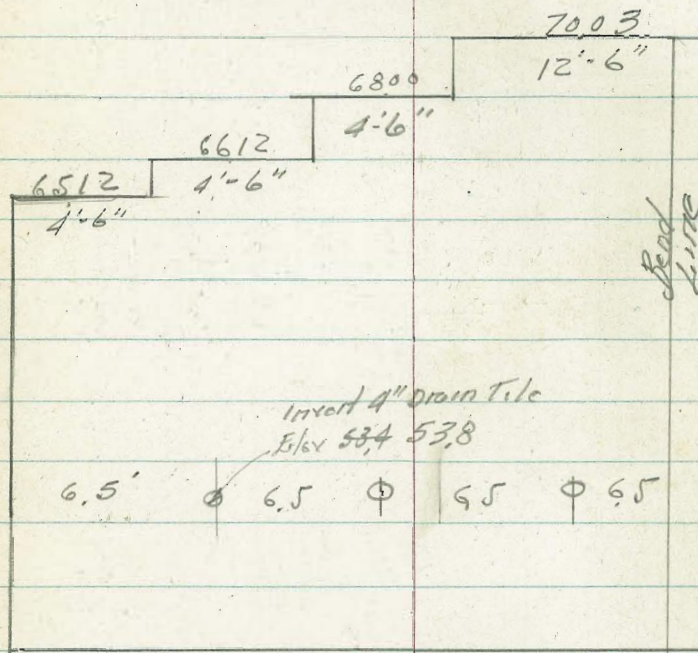 7003
12'-6"
6800
4'-6"
6612
4'-6"
6512
4'-6"
Bend
Line
Invert 4" Drain Tile
Elev 53,4 53,8
6.5' 6.5 6.5 6.5